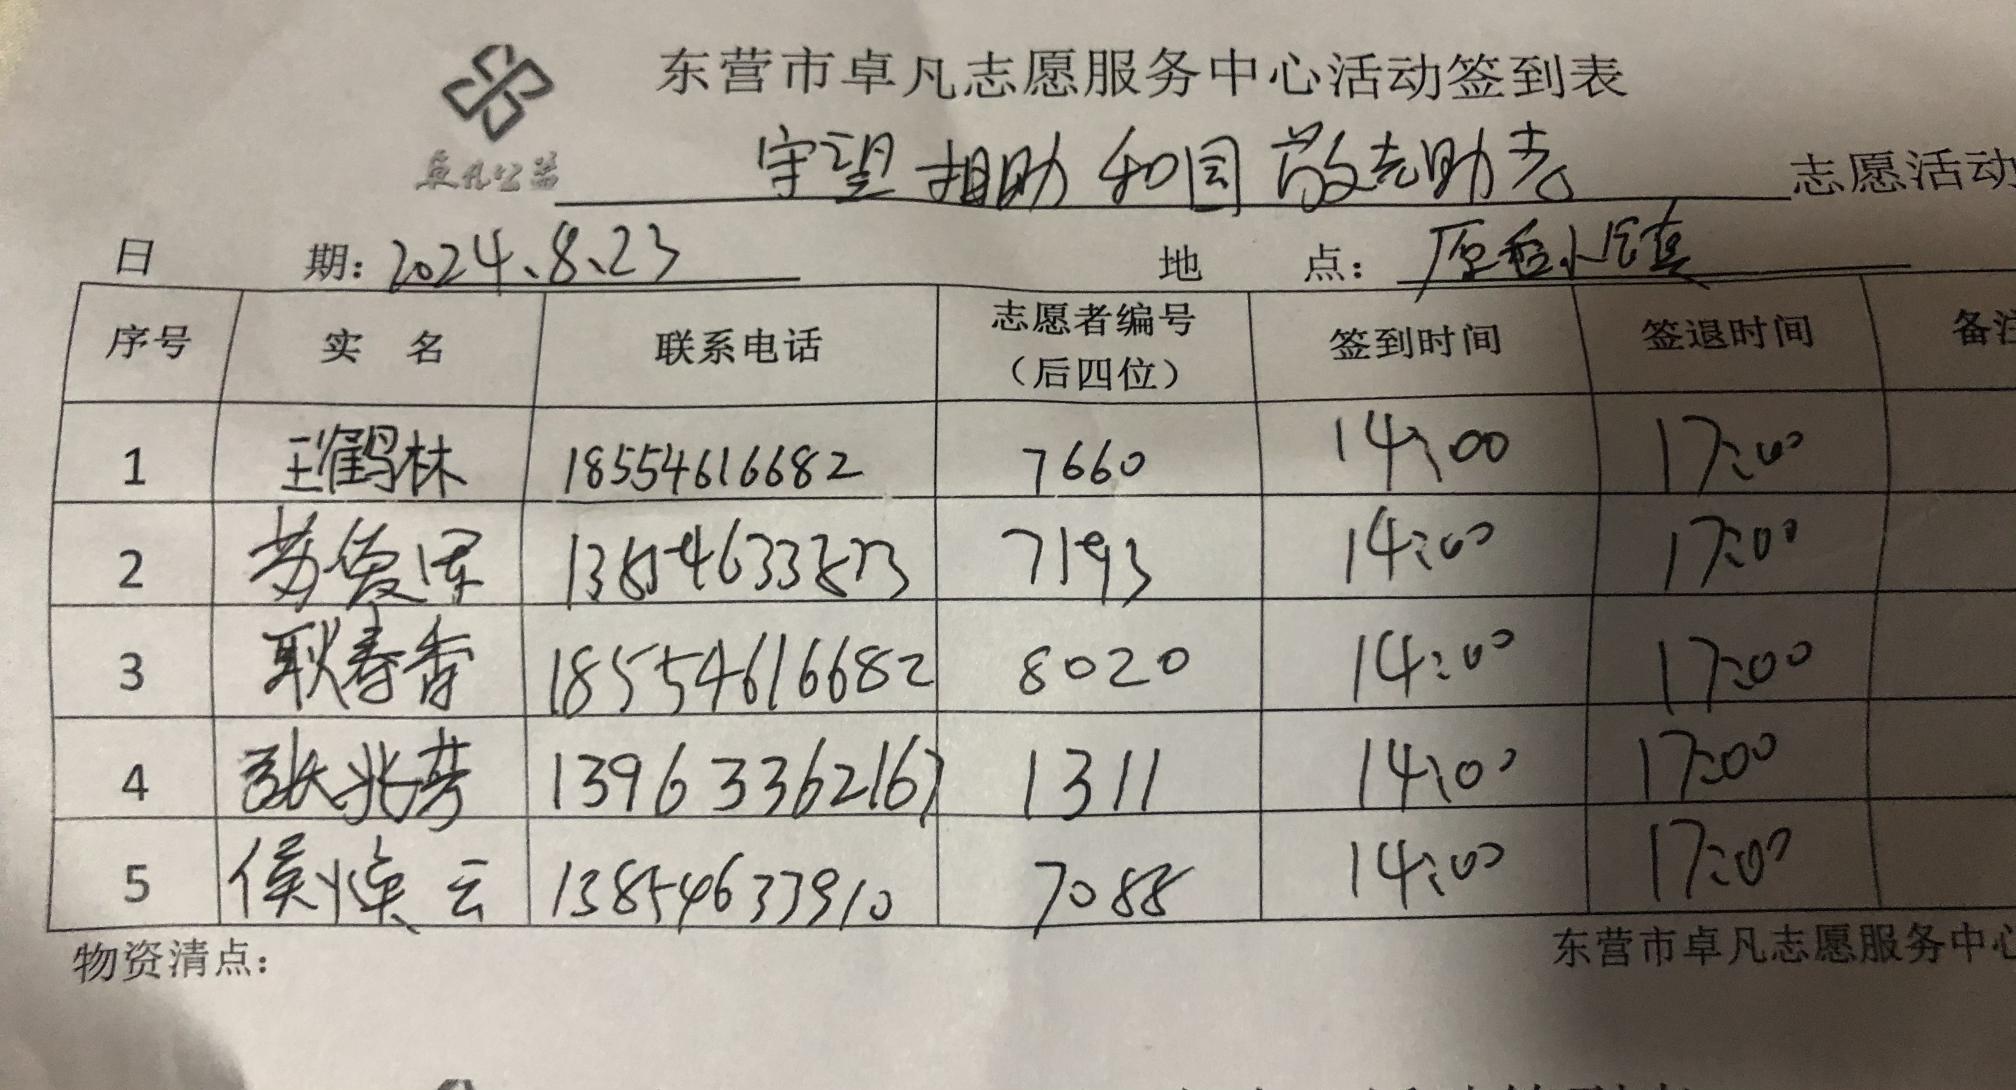 东营市卓凡志愿服务中心活动签到表
卓凡公益
守望相助 和园 敬老助老 志愿活动
日 期：2024、8、23 地 点：小镇
序号 实 名 联系电话 志愿者编号（后四位） 签到时间 签退时间 备注
1 王鹤林 18554616682 7660 14:00 17:00
2 苏爱军 7193 14:00 17:00
3 耿春香 18554616682 8020 14:00 17:00
4 张兆芳 13963362167 1311 14:00 17:00
5 侯焕云 13854633910 7088 14:00 17:00
物资清点： 东营市卓凡志愿服务中心